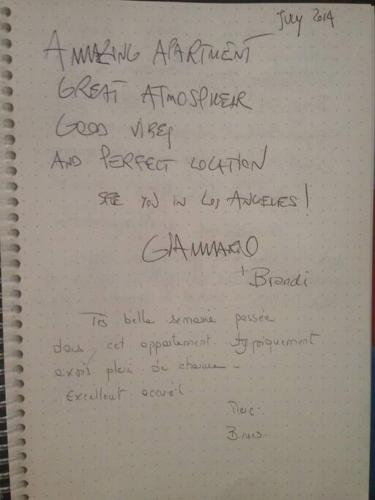 July 2014
AMAZING APARTMENT
GREAT ATMOSPHEAR
GOOD VIBES
AND PERFECT LOCATION
SEE YOU IN LOS ANGELES!
GIANMARIO
+ Brandi
Très belle semaine passée
dans cet appartement typiquement
plein de charme.
Excellent accueil